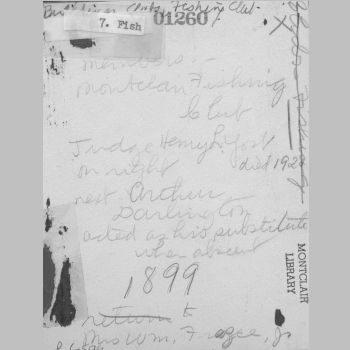 Buildings, Clubs, Fishing Club.
7. Fish
01260
Members:-
Montclair Fishing
Club
Judge Henry L. Yost
on right
died 1920
next Arthur
Darlington
acted as his substitute
when absent
1899
return to
Mrs Wm. Frazee, Jr
MONTCLAIR
LIBRARY